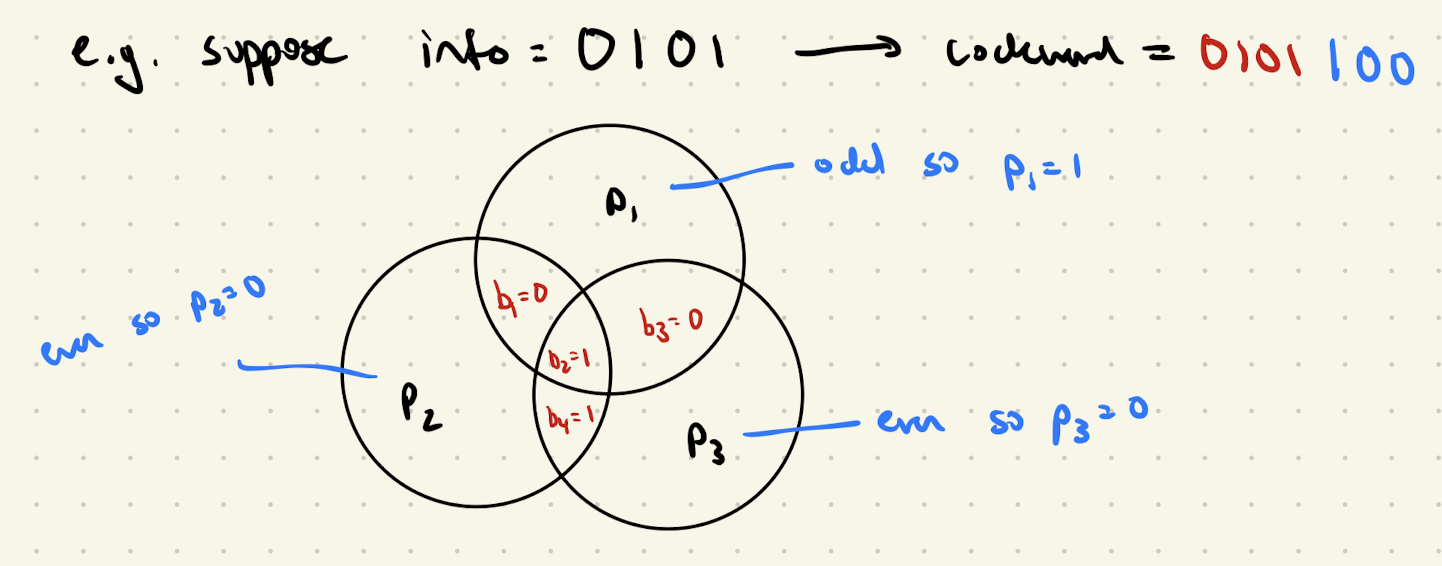 e.g. suppose info = 0101 → codeword = 0101 100
odd so p₁=1
p₁
even so p₂=0
b₁=0
b₃=0
b₂=1
p₂
b₄=1
p₃
even so p₃=0